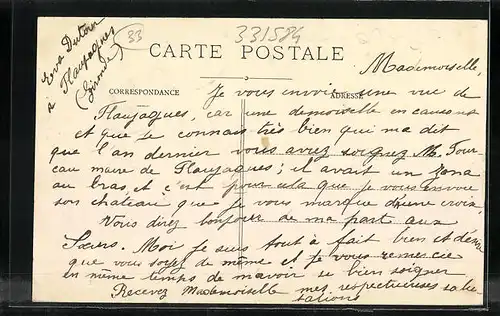 Eva Dutour
à Flaujagues
(Gironde)
33
331584
CARTE POSTALE
CORRESPONDANCE
ADRESSE
Mademoiselle,
Je vous envoie une vue de
Flaujagues, car une demoiselle en causant
et que je connais très bien qui m'a dit
que l'an dernier vous avez soigné M. Four-
cau maire de Flaujagues; il avait un zona
au bras, et c'est pour cela que je vous envoie
son chateau que je vous marque d'une croix,
Vous direz bonjour de ma part aux
Sœurs. Moi je suis tout à fait bien et désire
que vous soyez de même et je vous remercie
en même temps de m'avoir si bien soigner,
Recevez Mademoiselle mes respectueuses salu-
tations